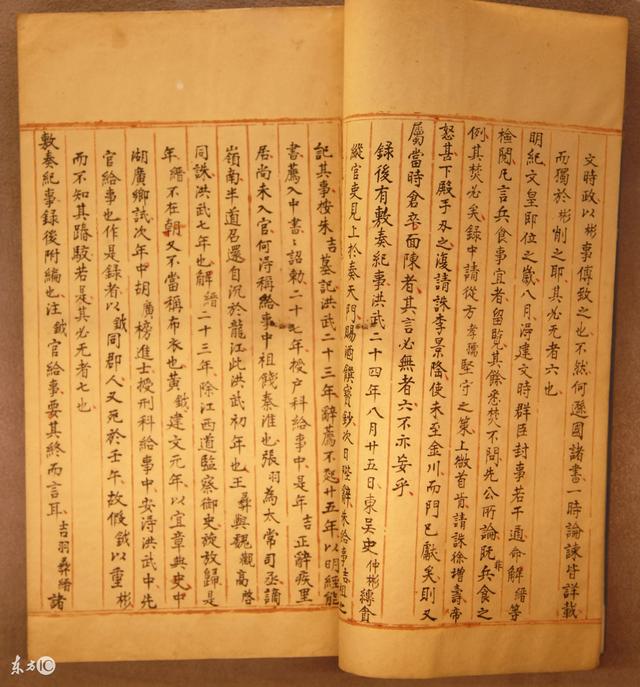 文時政以彬事傅致之也不然何遜國諸書一時論諫皆詳載
而獨於彬削之耶其必无者六也
明紀文皇即位之歲八月得建文時群臣封事若干通命解縉等
檢閱凡言兵食事宜者留覽其餘悉焚不問先公所論既非兵食之
例其焚必矣錄中請從方孝孺堅守之策上微首肯請誅徐增壽帝
怒甚下殿手刃之復請誅李景隆使未至金川而門已獻矣則又
屬當時倉卒面陳者其言必無者六不亦妄乎
錄後有敷奏紀事洪武二十四年八月廿五日東吳史仲彬縛貪
縱官吏見上於奉天門賜酒饌寶鈔次日陛辭朱給事吉祖之
記其事按朱吉墓記洪武二十三年辭薦不起廿五年以明經能
書薦入中書々詔勅二十七年授戶科給事中是年吉正辭疾里
居尚未入官何得稱給事中祖餞秦淮也張羽為太常司丞謫
嶺南半道召還自沉於龍江此洪武初年也王彝與魏觀高啓
同誅洪武七年也解縉二十三年除江西道監察御史旋放歸是
年縉不在朝又不當稱布衣也黃鉞建文元年以宜章典史中
湖廣鄉試次年中胡廣榜進士授刑科給事中安得洪武中先
官給事也作是錄者以鉞同郡人又死於壬午故假鉞以重彬
而不知其踳駁若是其必无者七也
敷奏紀事錄後附編也注鉞官給事要其終而言耳吉羽彝縉諸
东方IC